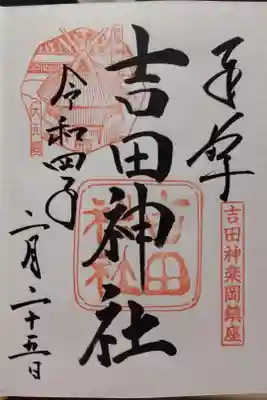 奉拝
吉田神楽岡鎮座
吉田神社
吉田神社
令和四年
二月二十五日